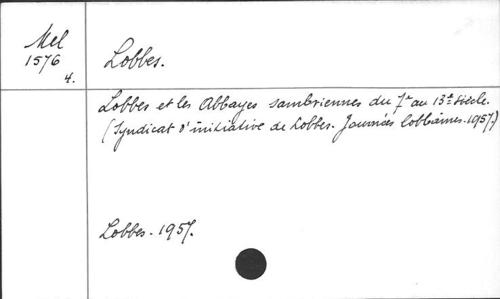 Mel
1576
4.
Lobbes.
Lobbes et les Abbayes sambriennes du 7e au 13e siècle.
(Syndicat d'initiative de Lobbes. Journées lobbaines. 1957.)
Lobbes. 1957.